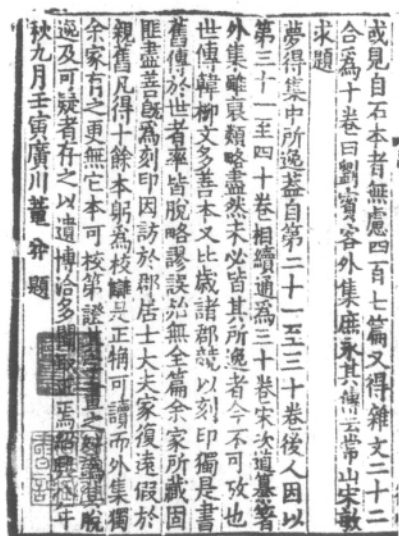 或見自石本者無慮四百七篇又得雜文二十二
合為十卷曰劉賓客外集庶永其傳云常山宋敏
求題
夢得集中所逸葢自第二十一至三十卷後人因以
第三十一至四十卷相續通為三十卷宋次道纂著
外集雖裒類略盡然未必皆其所逸者今不可攷也
世傳韓柳文多善本又比歲諸郡競以刻印獨是書
舊傳於世者率皆脫略謬誤殆無全篇余家所藏固
匪盡善旣為刻印因訪於郡居士大夫家復遠假於
親舊凡得十餘本躬為校讎是正稍可讀而外集獨
余家有之更無它本可校第證其字畫之脫
逸及可疑者存之以遺博洽多聞取正焉紹興八年
秋九月壬寅廣川董弅題